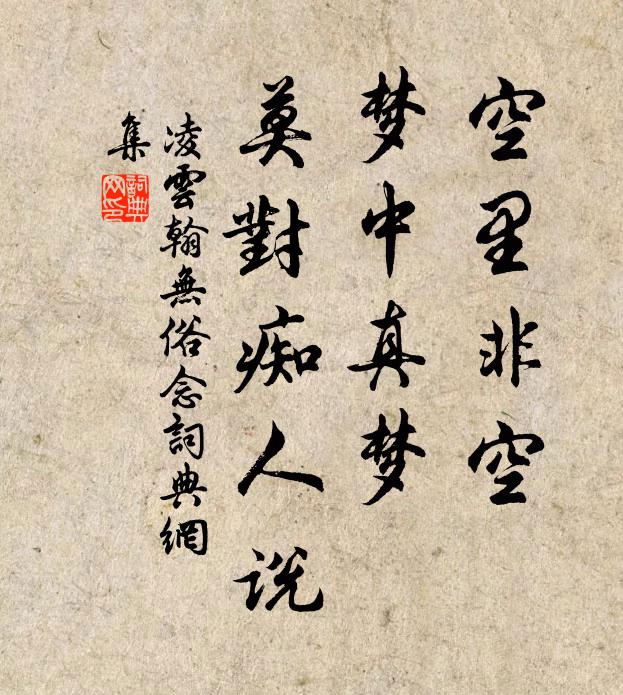 空里非空
梦中真梦
莫對痴人说
凌雲翰無俗念詞典網
集
詞典
网印